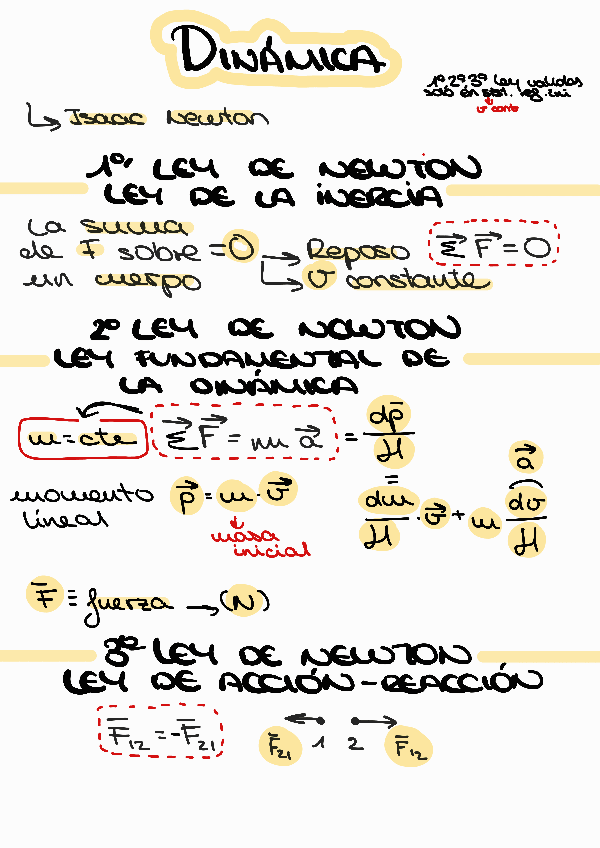 DINÁMICA
1º 2º, 3º Ley validas
solo en sist. ref. ini
v cante
↳ Isaac Newton
1º LEY DE NEWTON
LEY DE LA INERCIA
La suma
de F sobre = 0 → Reposo
un cuerpo ↳ v constante
Σ F = 0
2º LEY DE NEWTON
LEY FUNDAMENTAL DE
LA DINÁMICA
m = cte Σ F = m a = dp/dt
momento
lineal
p = m · v
masa
inicial
= dm/dt · v + m dv/dt
a
F ≡ fuerza → (N)
3ª LEY DE NEWTON
LEY DE ACCIÓN-REACCIÓN
F12 = -F21
F21 1 2 F12